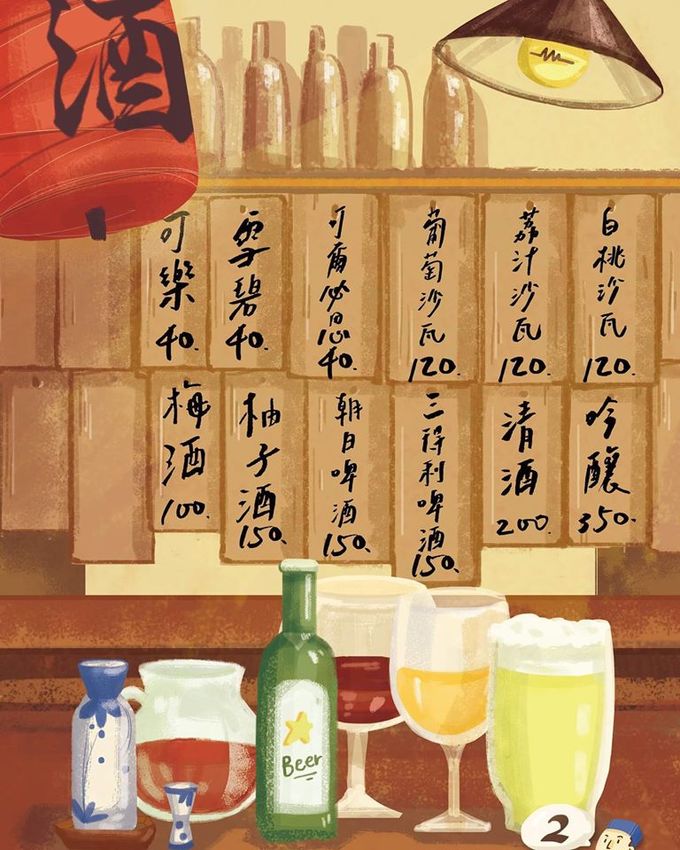 酒
可樂
40.
雪碧
40.
可爾必思
40.
葡萄沙瓦
120.
荔汁沙瓦
120.
白桃沙瓦
120.
梅酒
100.
柚子酒
150.
朝日啤酒
150.
三得利啤酒
150.
清酒
200.
吟釀
350.
Beer
2